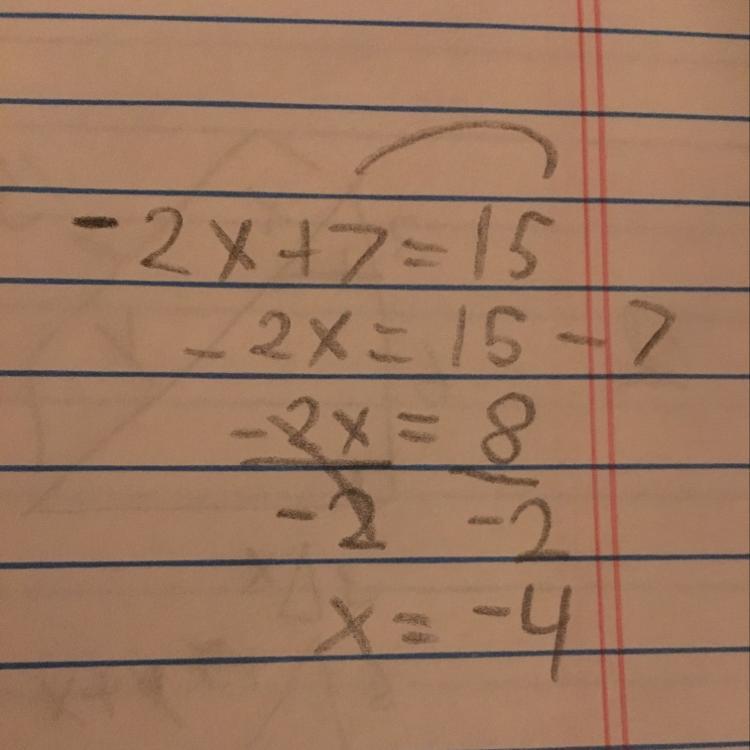 -2x+7=15
-2x=15-7
-2x=8
-2 -2
x=-4